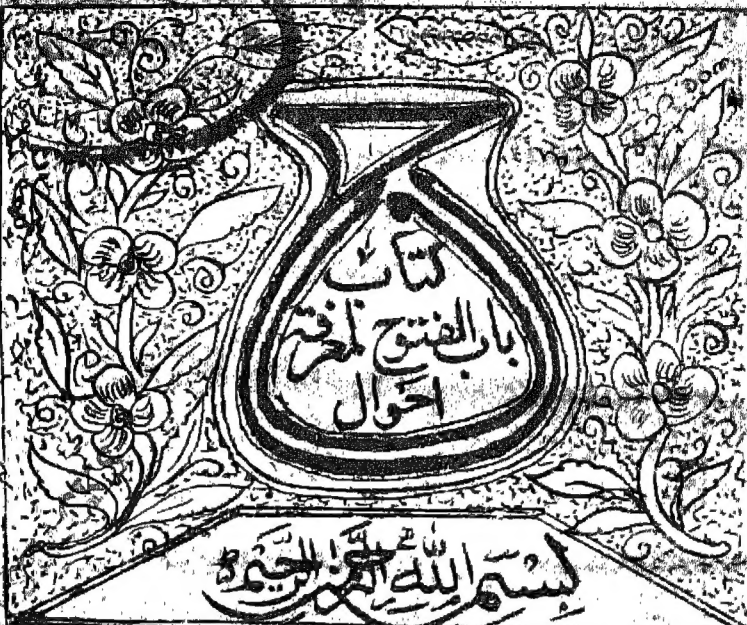 كتاب
باب الفتوح لمعرفة
احوال
بِسْمِ اللهِ الرَّحْمٰنِ الرَّحِيْمِ